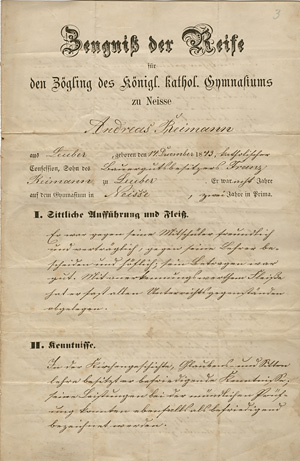 3
Zeugniß der Reife
für
den Zögling des Königl. kathol. Gymnasiums
zu Neisse
Andreas Reimann
aus Deuber, geboren den 14 Dezember 1843, katholischer
Confession, Sohn des Bauergutsbesitzers Franz
Reimann zu Deuber. Er war acht Jahre
auf dem Gymnasium in Neisse, zwei Jahre in Prima.
I. Sittliche Aufführung und Fleiß.
Er war gegen seine Mitschüler freundlich
und verträglich, gegen seine Lehrer be-
scheiden und höflich, sein Betragen war
gut. Mit anerkennungswerthem Fleiße
hat er fast allen Unterrichtsgegenständen
obgelegen.
II. Kenntnisse.
In der Kirchengeschichte, Glaubens- und Sitten
lehre besitzt er befriedigende Kenntnisse,
seine Leistungen bei der mündlichen Prüf-
ung konnten ebenfalls als befriedigend
bezeichnet werden.